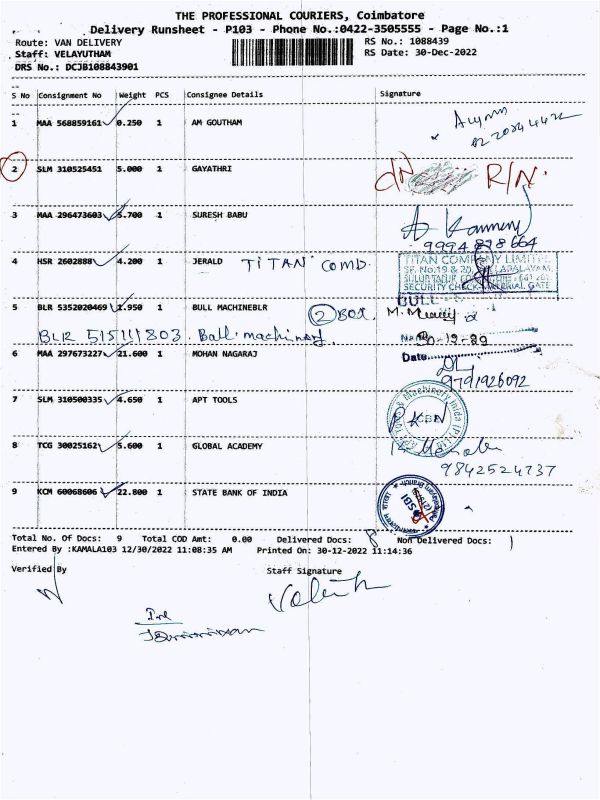 THE PROFESSIONAL COURIERS, Coimbatore
Delivery Runsheet - P103 - Phone No.:0422-3505555 - Page No.:1
Route: VAN DELIVERY RS No.: 1088439
Staff: VELAYUTHAM RS Date: 30-Dec-2022
DRS No.: DCJB108843901
S No Consignment No Weight PCS Consignee Details Signature
1 MAA 568859161 0.250 1 AM GOUTHAM
2 SLM 310525451 5.000 1 GAYATHRI R/N.
3 MAA 296473603 5.700 1 SURESH BABU
9994878664
4 HSR 2602888 4.200 1 JERALD TITAN COMD.
TITAN COMPANY LIMITED
SF. No:19 & 20,
SECURITY CHECK MATERIAL GATE
5 BLR 5352020469 1.950 1 BULL MACHINEBLR 2 BOX
BULL
BLR 515111803. Ball machinery
30-12-29
Date
6 MAA 297673227 21.600 1 MOHAN NAGARAJ
9791926092
7 SLM 310500335 4.650 1 APT TOOLS
8 TCG 30025162 5.600 1 GLOBAL ACADEMY
9842524737
9 KCM 60068606 22.800 1 STATE BANK OF INDIA
SBI
Total No. Of Docs: 9 Total COD Amt: 0.00 Delivered Docs: 8 Non Delivered Docs: 1
Entered By :KAMALA103 12/30/2022 11:08:35 AM Printed On: 30-12-2022 11:14:36
Verified By Staff Signature